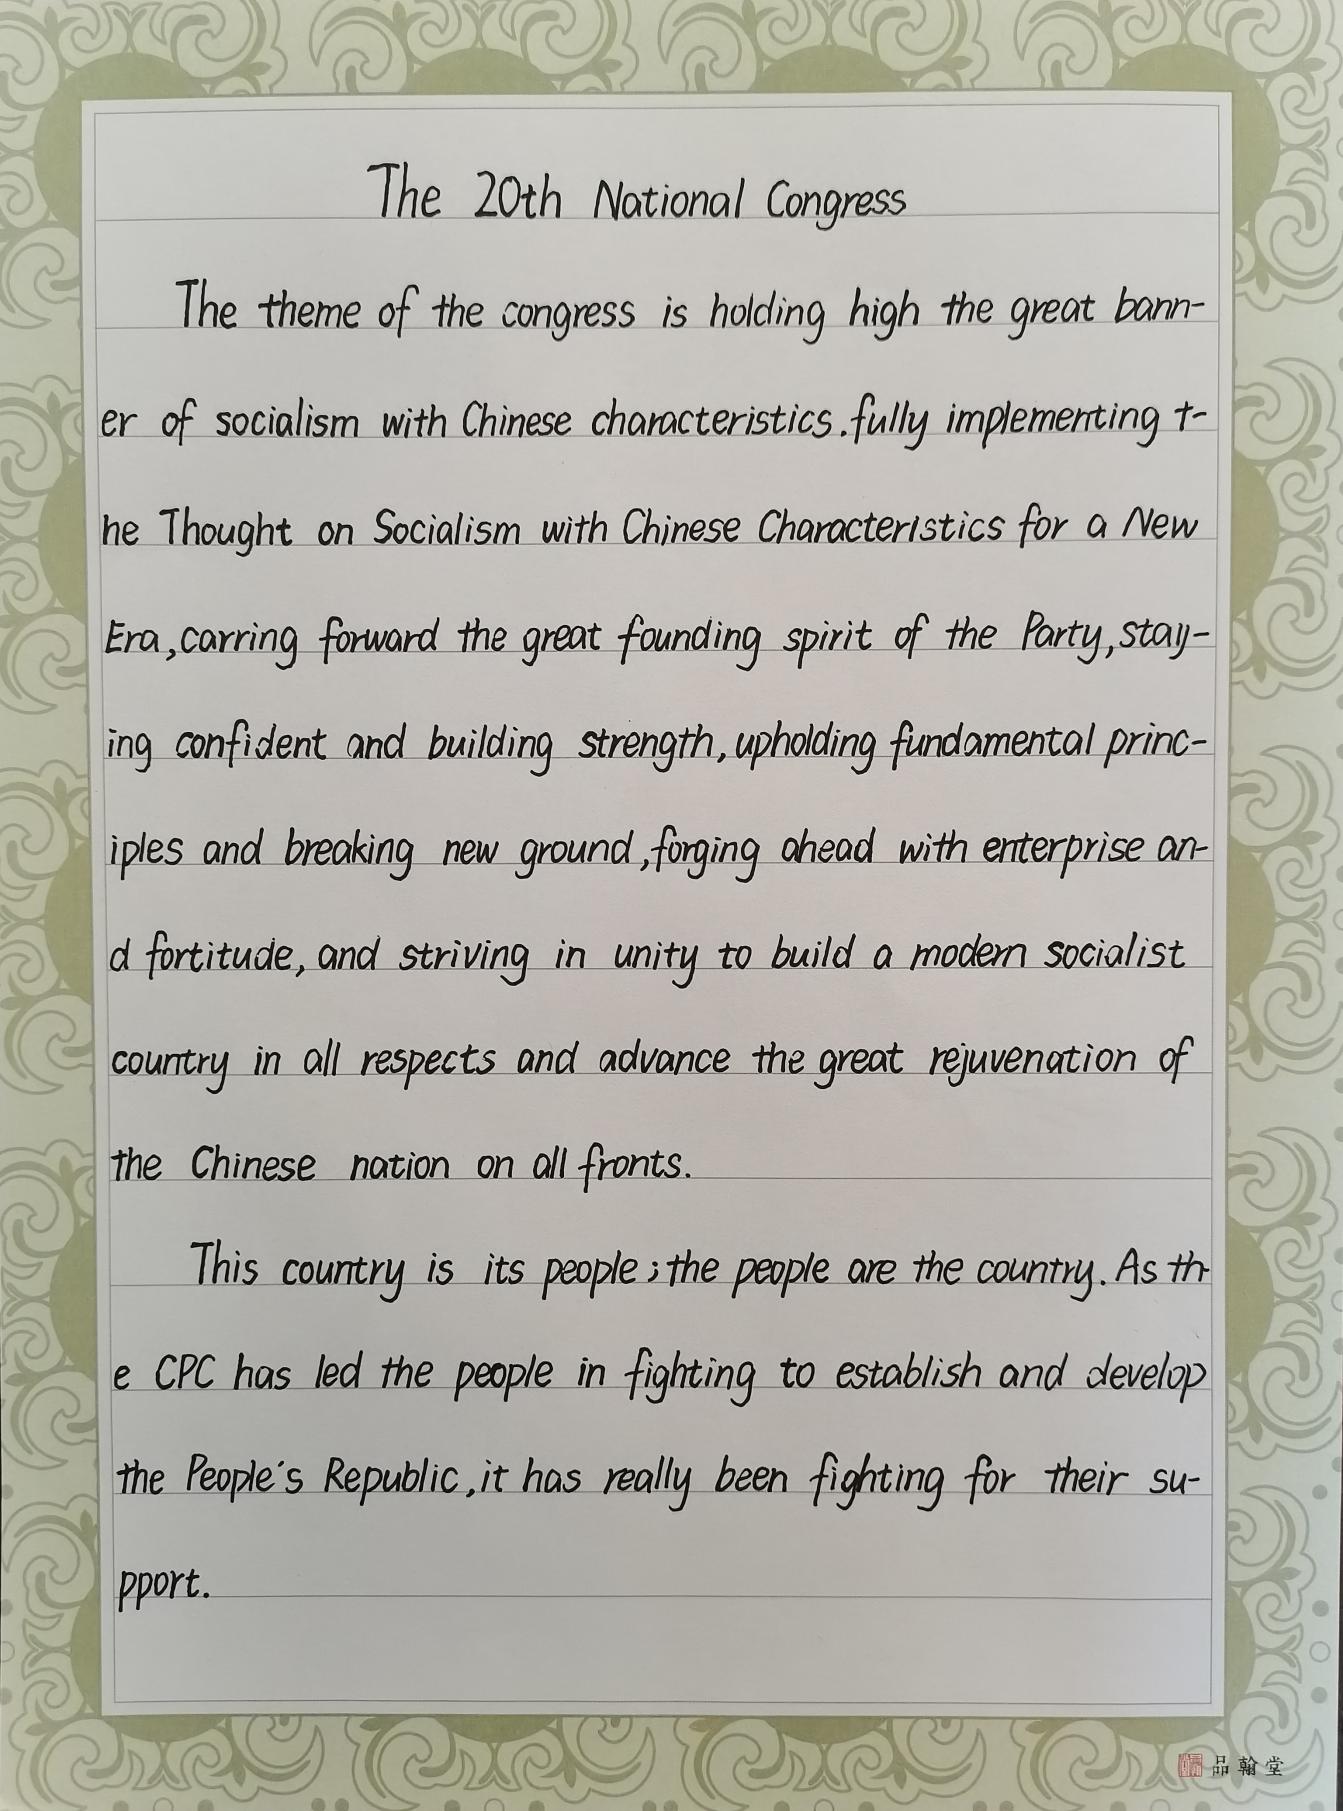 The 20th National Congress
The theme of the congress is holding high the great bann-
er of socialism with Chinese characteristics.fully implementing t-
he Thought on Socialism with Chinese Characteristics for a New
Era,carring forward the great founding spirit of the Party,stay-
ing confident and building strength,upholding fundamental princ-
iples and breaking new ground,forging ahead with enterprise an-
d fortitude, and striving in unity to build a modern socialist
country in all respects and advance the great rejuvenation of
the Chinese nation on all fronts.
This country is its people;the people are the country. As th-
e CPC has led the people in fighting to establish and develop
the People's Republic,it has really been fighting for their su-
pport.
品翰堂